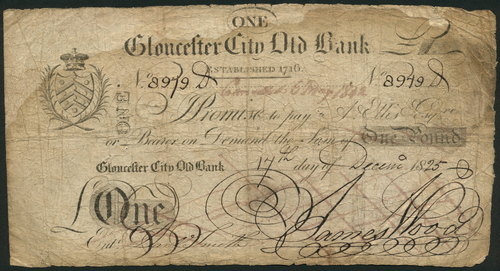 ONE
Gloucester City Old Bank
ESTABLISHED 1716.
No. 8979 D No. 8979 D
ONE
I Promise to pay A. Ellis Esqr
or Bearer on Demand the Sum of One Pound
Gloucester City Old Bank 17th day of Decemr. 1825
£One
Entd. James Wood